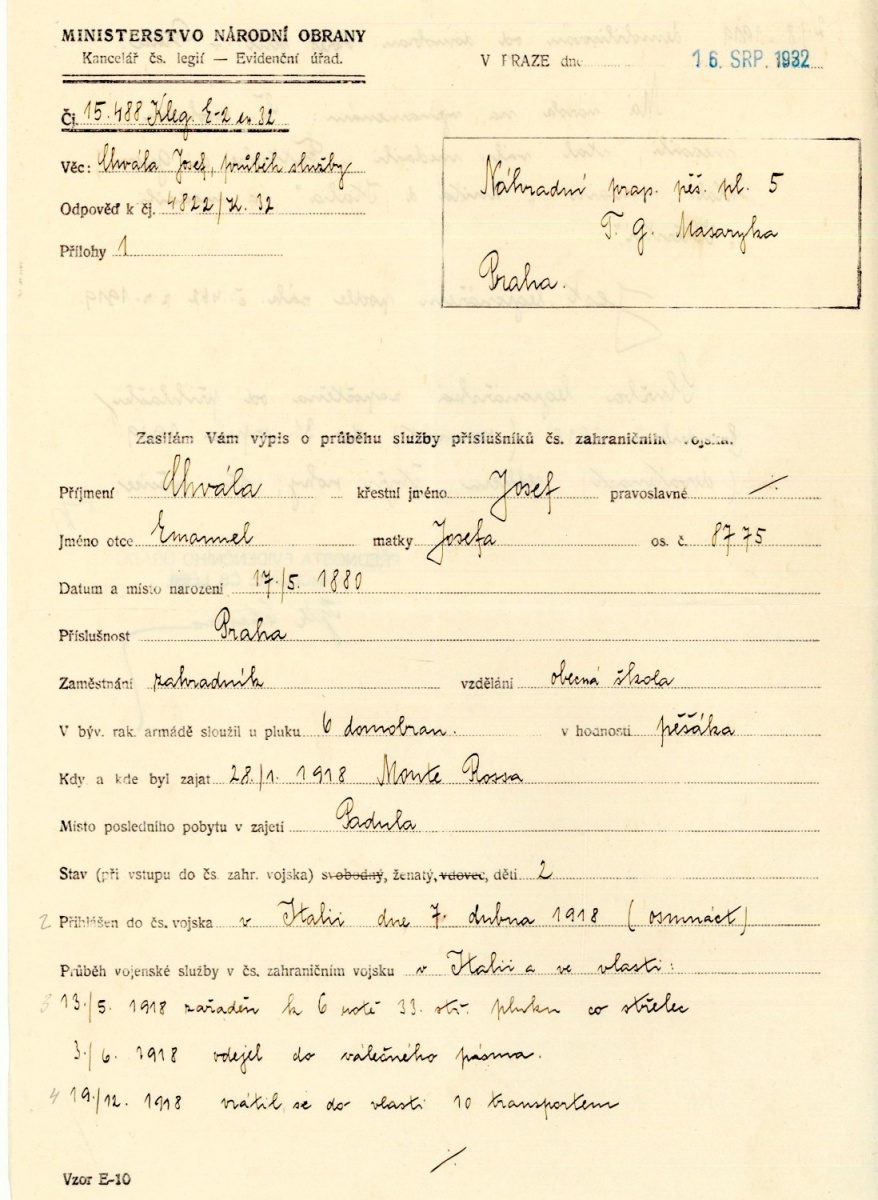 MINISTERSTVO NÁRODNÍ OBRANY
Kancelář čs. legií — Evidenční úřad.
V PRAZE dne 16. SRP. 1932
Čj. 15.488 Kleg. E-2 32
Věc: Chvála Josef, průběh služby
Odpověď k čj. 4822/ 32
Přílohy 1
Náhradní prap. pěš. pl. 5
T. G. Masaryka
Praha.
Zasílám Vám výpis o průběhu služby příslušníků čs. zahraničního vojska.
Příjmení Chvála křestní jméno Josef pravoslavné ./.
Jméno otce Emanuel matky Josefa os. č. 8775
Datum a místo narození 17./5. 1880
Příslušnost Praha
Zaměstnání zahradník vzdělání obecná škola
V býv. rak. armádě sloužil u pluku 6 domobran. v hodnosti pěšáka
Kdy a kde byl zajat 28./1. 1918 Monte Rossa
Místo posledního pobytu v zajetí Padula
Stav (při vstupu do čs. zahr. vojska) svobodný, ženatý, vdovec, děti 2
2 Přihlášen do čs. vojska v Italii dne 7. dubna 1918 (osmnáct)
Průběh vojenské služby v čs. zahraničním vojsku v Italii a ve vlasti:
3 13./5. 1918 zařaděn k 6 rotě 33. stř. pluku co střelec
3./6. 1918 odejel do válečného pásma.
4 19./12. 1918 vrátil se do vlasti 10 transportem
./.
Vzor E-10